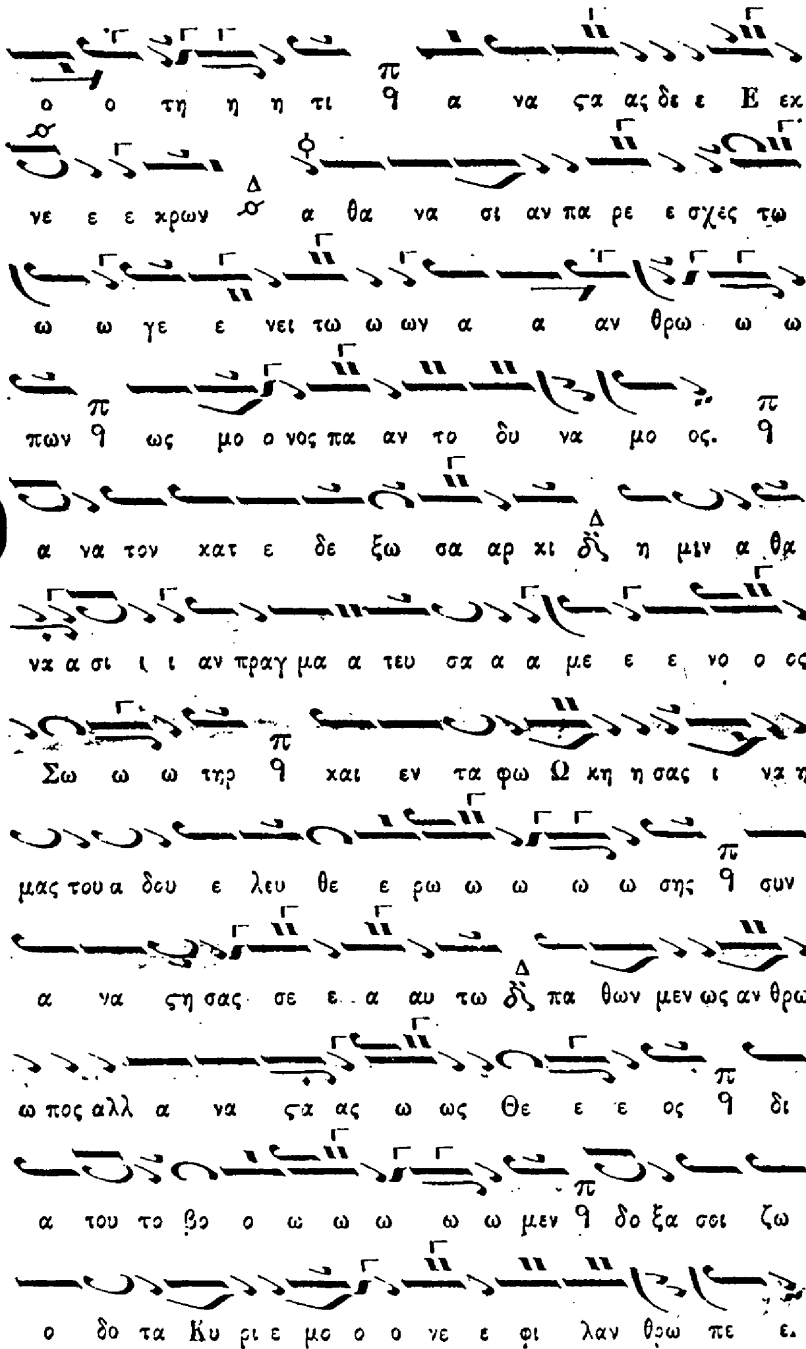 ο ο τη η η τι π q α να ϛα ας δε ε Ε εκ
νε ε ε κρων Δ α θα να σι αν πα ρε ε σχες τω
ω ω γε ε νει τω ω ων α α αν θρω ω ω
πων π q ως μο ο νος πα αν το δυ να μο ος. π q
α να τον κατ ε δε ξω σα αρ κι Δ η μιν α θα
να α σι ι ι αν πραγ μα α τευ σα α α με ε ε νο ο ος
Σω ω ω τηρ π q και εν τα φω Ω κη η σας ι να η
μας του α δου ε λευ θε ε ρω ω ω ω ω σης π q συν
α να ϛη σας σε ε α αυ τω Δ πα θων μεν ως αν θρω
ω πος αλλ α να ϛα ας ω ως Θε ε ε ος π q δι
α του το βο ο ω ω ω ω ω μεν π q δο ξα σοι ζω
ο δο τα Κυ ρι ε μο ο ο νε ε φι λαν θρω πε ε.